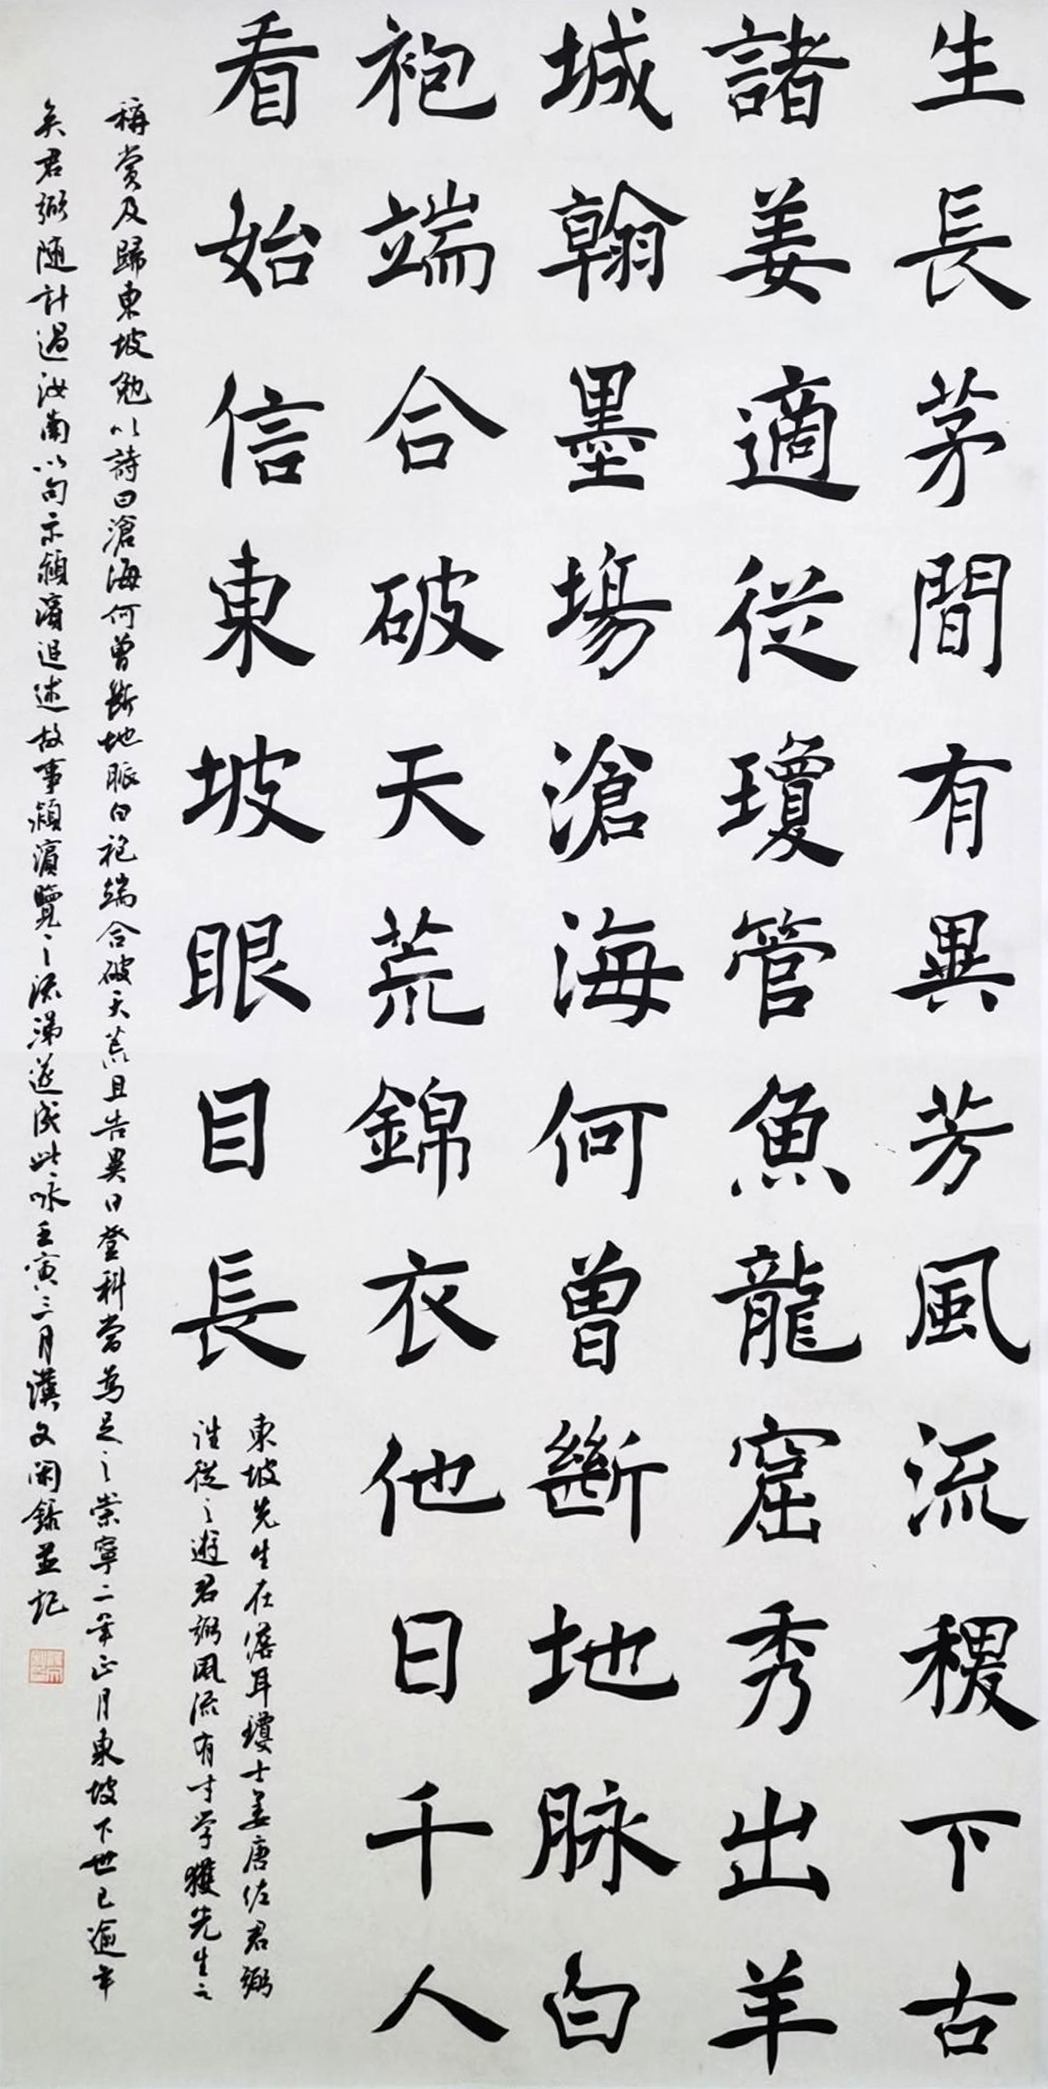 生長茅間有異芳風流稷下古
諸姜適從瓊管魚龍窟秀出羊
城翰墨場滄海何曾斷地脉白
袍端合破天荒錦衣他日千人
看始信東坡眼目長
東坡先生在儋耳瓊士姜唐佐君弼
往從之遊君弼風流有才学獲先生之
稱赏及歸東坡勉以詩曰滄海何曾断地脈白袍端合破天荒且告異日登科當為足之崇寧二年正月東坡下世已逾年
矣君弼随计過汝南以句示潁濱追述故事潁濱覽之流涕遂成此咏壬寅三月漢文闲録並記